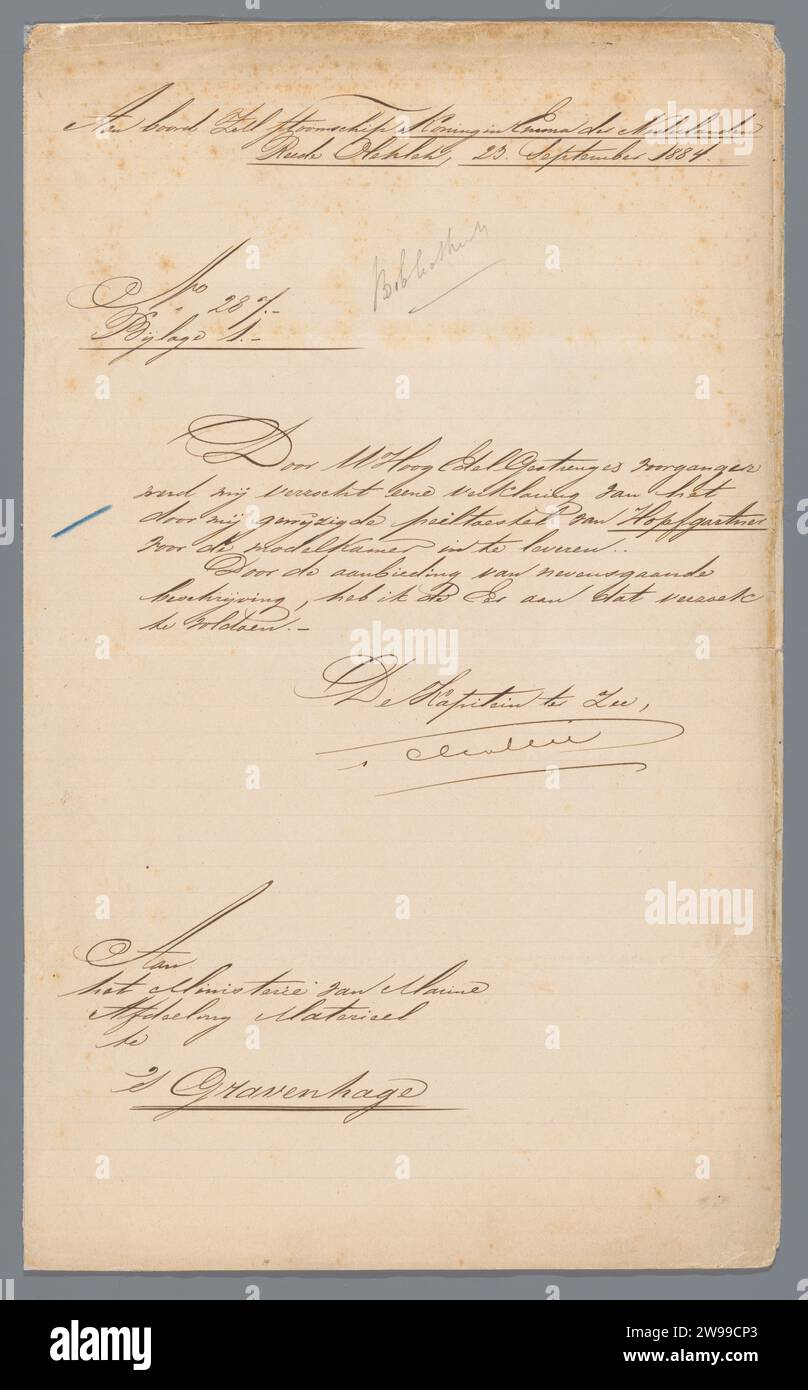 Aan boord Zr Ms stoomschip Koningin Emma der Nederlanden
Reede Olehleh, 23 September 1884.
Bibliotheek
No 287.-
Bijlage 1.-
Door UHoogEdelGestrenges voorganger
werd mij verzocht eene verklaring van het
door mij gewijzigde peiltoestel van Hopfgartner
voor de modelkamer in te leveren..
Door de aanbieding van nevensgaande
beschrijving, heb ik de Eer aan dat verzoek
te voldoen.-
De Kapitein ter Zee,
Aan
het Ministerie van Marine
Afdeeling Materieel
te
's Gravenhage
alamy
Image ID: 2W99CP3
www.alamy.com